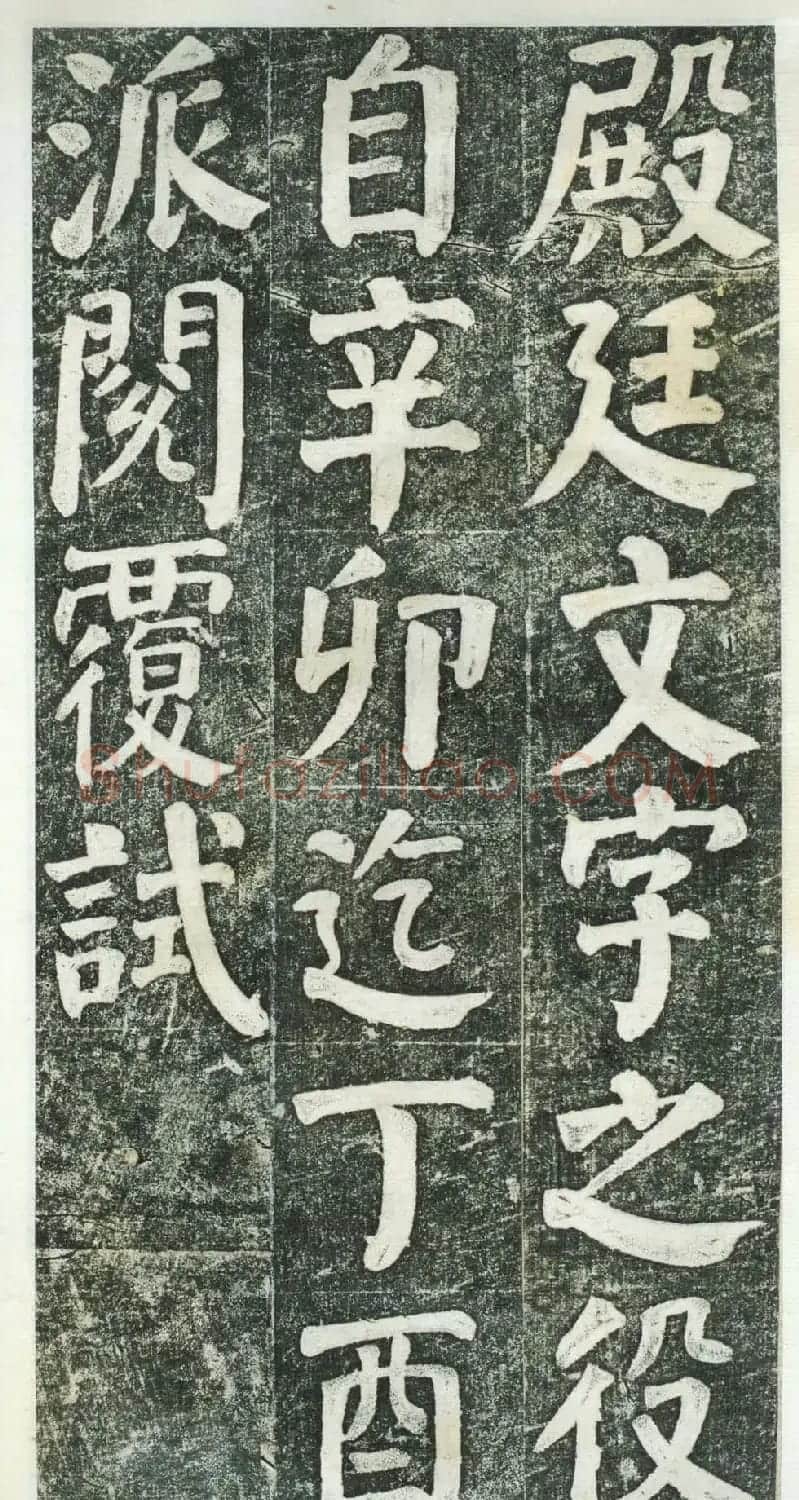 殿廷文字之役
自辛卯迄丁酉
派閱覆試
Shufaziliao.COM